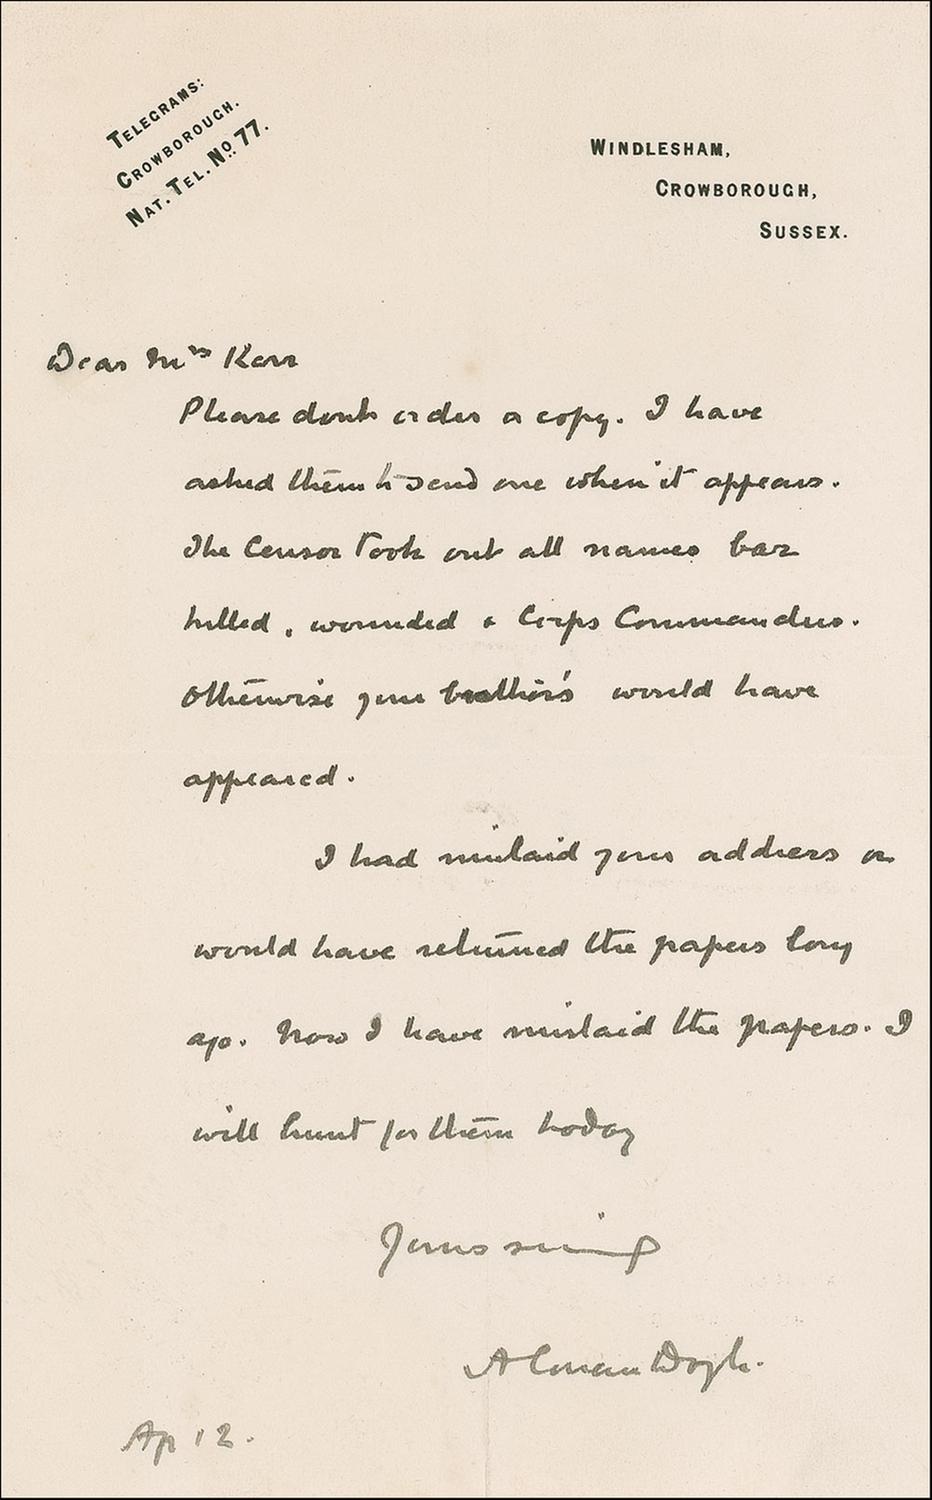 TELEGRAMS:
CROWBOROUGH.
NAT. TEL. No. 77.
WINDLESHAM,
CROWBOROUGH,
SUSSEX.
Dear Mrs Kerr
Please dont order a copy. I have
asked them to send one when it appears.
The Censor took out all names bar
killed, wounded & Corps Commanders.
Otherwise your brother's would have
appeared.
I had mislaid your address or
would have returned the papers long
ago. Now I have mislaid the papers. I
will hunt for them today
Yours sincerely
A Conan Doyle.
Ap 12.